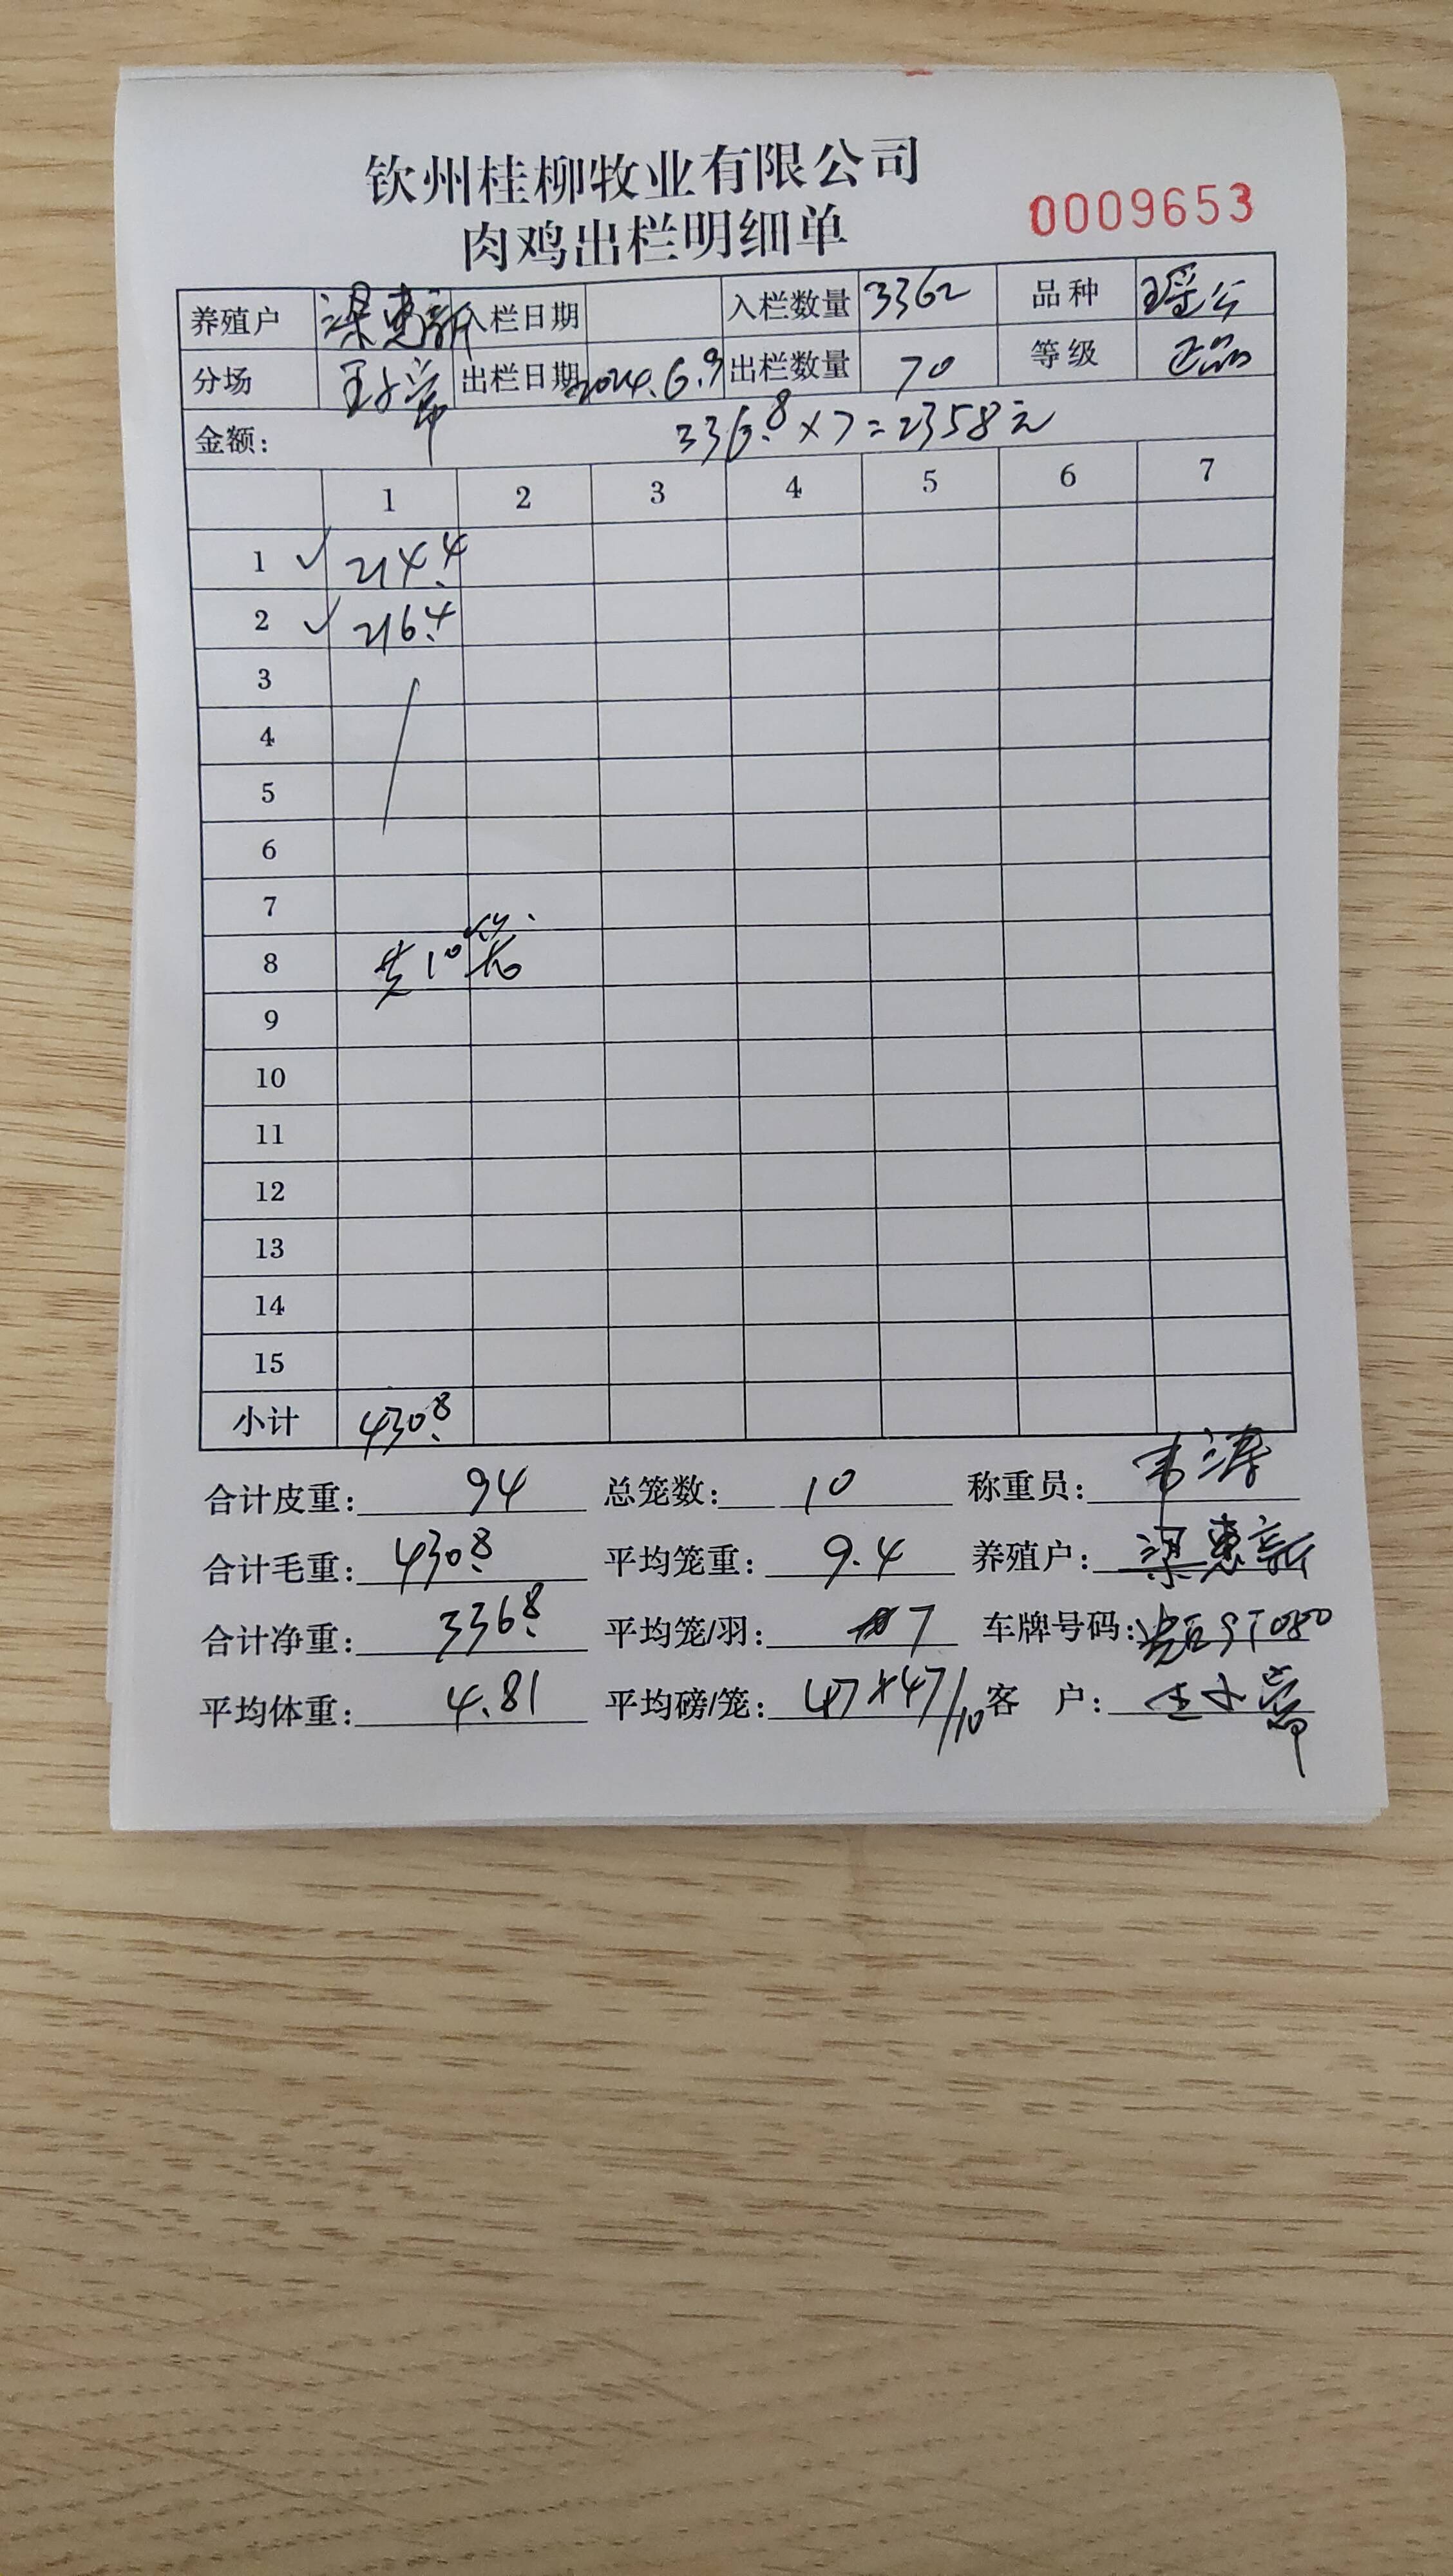 钦州桂柳牧业有限公司
肉鸡出栏明细单
0009653
养殖户 梁惠新 入栏日期 入栏数量 3362 品种 瑶公
分场 出栏日期 2024.6.9 出栏数量 70 等级 正品
金额: 336.8×7=2358元
1 2 3 4 5 6 7
1 ✓ 214.4
2 ✓ 216.4
3
4
5
6
7
8 共10笼
9
10
11
12
13
14
15
小计 430.8
合计皮重: 94 总笼数: 10 称重员: 韦涛
合计毛重: 430.8 平均笼重: 9.4 养殖户: 梁惠新
合计净重: 336.8 平均笼/羽: 7 车牌号码:
平均体重: 4.81 平均磅/笼: 47+47/10 客 户: